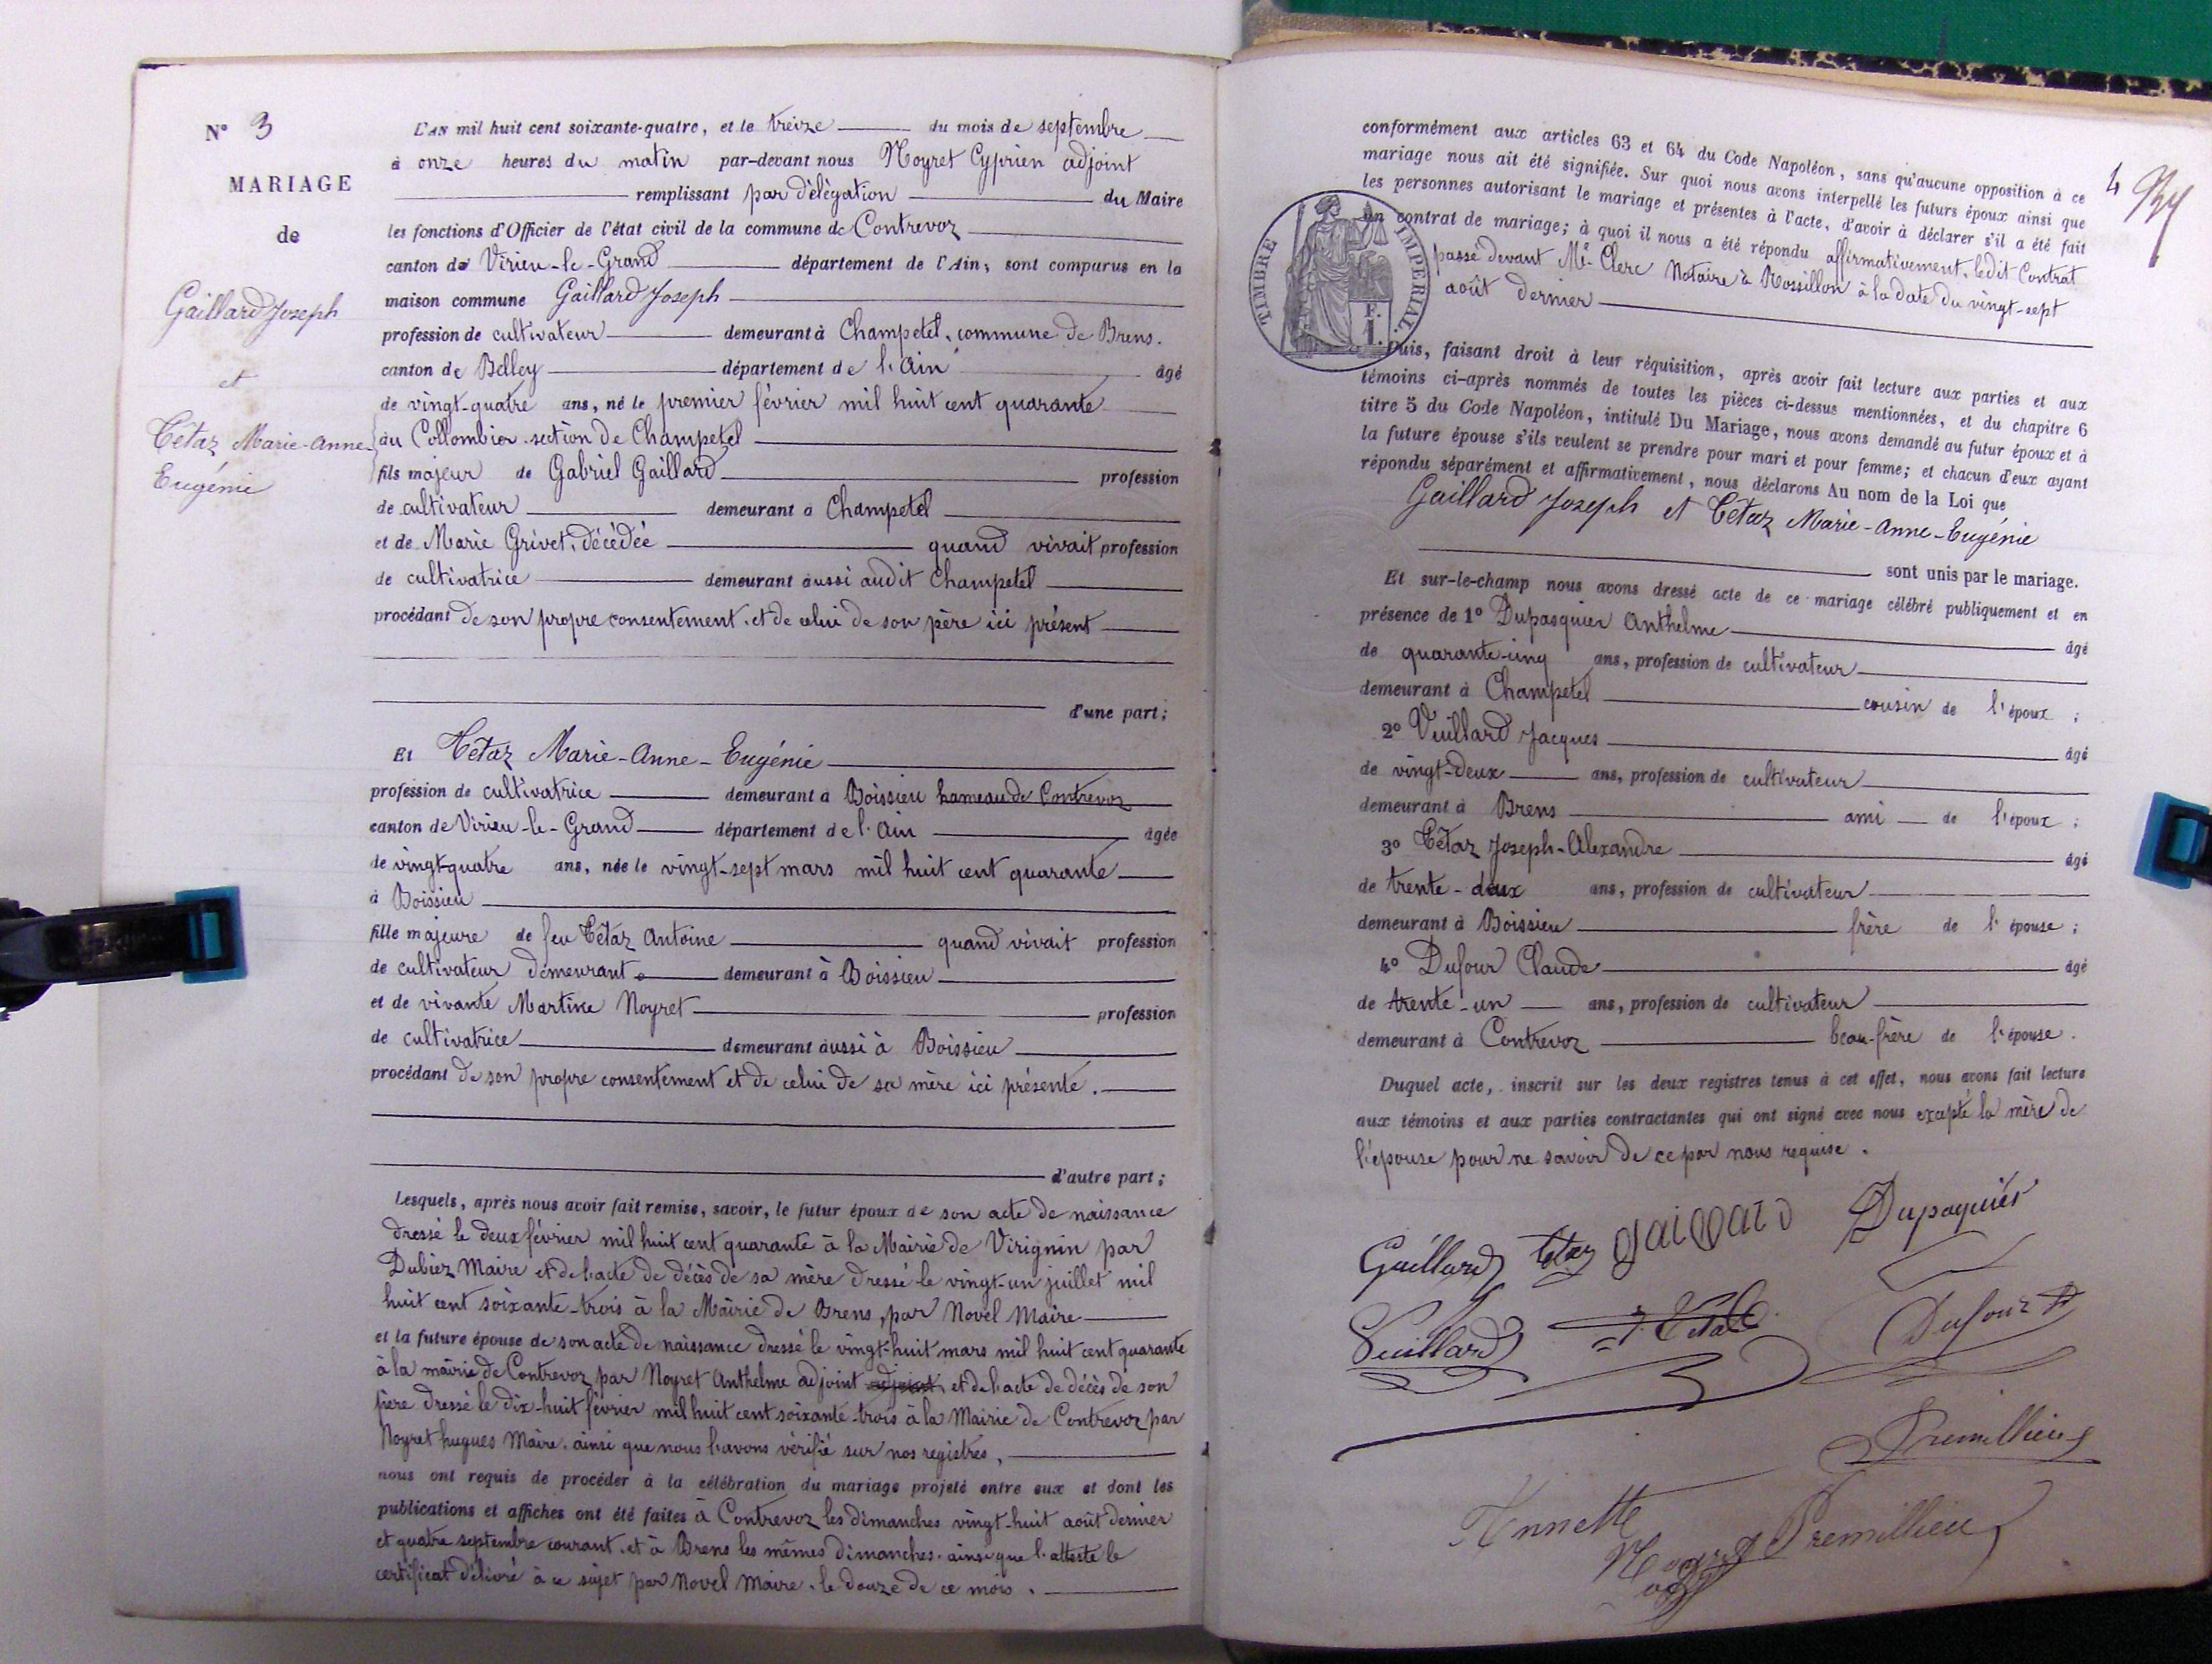 N° 3
MARIAGE
de
Gaillard Joseph
et
Tétaz Marie-Anne-
Eugénie
L'AN mil huit cent soixante-quatre, et le treize du mois de septembre
à onze heures du matin par-devant nous Noyret Cyprien adjoint
remplissant par délégation du Maire
les fonctions d'Officier de l'état civil de la commune de Contrevoz
canton de Virieu-le-Grand département de l'Ain, sont comparus en la
maison commune Gaillard Joseph
profession de cultivateur demeurant à Champetel, commune de Brens.
canton de Belley département de l'Ain âgé
de vingt-quatre ans, né le premier février mil huit cent quarante
au Collombier section de Champetel
fils majeur de Gabriel Gaillard profession
de cultivateur demeurant à Champetel
et de Marie Grivet, décédée quand vivait profession
de cultivatrice demeurant aussi audit Champetel
procédant de son propre consentement et de celui de son père ici présent
d'une part;
Et Tétaz Marie-Anne-Eugénie
profession de cultivatrice demeurant à Boissieu hameau de Contrevoz
canton de Virieu-le-Grand département de l'Ain âgée
de vingt-quatre ans, née le vingt-sept mars mil huit cent quarante
à Boissieu
fille majeure de feu Tétaz Antoine quand vivait profession
de cultivateur demeurant demeurant à Boissieu
et de vivante Martine Noyret profession
de cultivatrice demeurant aussi à Boissieu
procédant de son propre consentement et de celui de sa mère ici présente.
d'autre part;
Lesquels, après nous avoir fait remise, savoir, le futur époux de son acte de naissance
dressé le deux février mil huit cent quarante à la Mairie de Virignin par
Dubiez Maire et de l'acte de décès de sa mère dressé le vingt-un juillet mil
huit cent soixante-trois à la Mairie de Brens, par Novel Maire
et la future épouse de son acte de naissance dressé le vingt-huit mars mil huit cent quarante
à la mairie de Contrevoz par Noyret Anthelme adjoint adjoint, et de l'acte de décès de son
père dressé le dix-huit février mil huit cent soixante-trois à la Mairie de Contrevoz par
Noyret hugues Maire, ainsi que nous l'avons vérifié sur nos registres,
nous ont requis de procéder à la célébration du mariage projeté entre eux et dont les
publications et affiches ont été faites à Contrevoz les dimanches vingt-huit août dernier
et quatre septembre courant, et à Brens les mêmes dimanches, ainsi que l'atteste le
certificat délivré à ce sujet par Novel Maire, le douze de ce mois.
4
conformément aux articles 63 et 64 du Code Napoléon, sans qu'aucune opposition à ce
mariage nous ait été signifiée. Sur quoi nous avons interpellé les futurs époux ainsi que
les personnes autorisant le mariage et présentes à l'acte, d'avoir à déclarer s'il a été fait
un contrat de mariage; à quoi il nous a été répondu affirmativement, ledit Contrat
passé devant Me Clerc Notaire à Rossillon à la date du vingt-sept
août dernier
TIMBRE IMPERIAL.
F.
1.
Puis, faisant droit à leur réquisition, après avoir fait lecture aux parties et aux
témoins ci-après nommés de toutes les pièces ci-dessus mentionnées, et du chapitre 6
titre 5 du Code Napoléon, intitulé Du Mariage, nous avons demandé au futur époux et à
la future épouse s'ils veulent se prendre pour mari et pour femme; et chacun d'eux ayant
répondu séparément et affirmativement, nous déclarons Au nom de la Loi que
Gaillard Joseph et Tétaz Marie-Anne-Eugénie
sont unis par le mariage.
Et sur-le-champ nous avons dressé acte de ce mariage célébré publiquement et en
présence de 1° Dupasquier Anthelme âgé
de quarante-cinq ans, profession de cultivateur
demeurant à Champetel cousin de l'époux;
2° Vuillard Jacques âgé
de vingt-deux ans, profession de cultivateur
demeurant à Brens ami de l'époux;
3° Tétaz Joseph-Alexandre âgé
de trente-deux ans, profession de cultivateur
demeurant à Boissieu frère de l'épouse;
4° Dufour Claude âgé
de trente-un ans, profession de cultivateur
demeurant à Contrevoz beau-frère de l'épouse.
Duquel acte, inscrit sur les deux registres tenus à cet effet, nous avons fait lecture
aux témoins et aux parties contractantes qui ont signé avec nous excepté la mère de
l'épouse pour ne savoir de ce par nous requise.
Gaillard Tetaz gaillard Dupaquier
Vuillard Dufour
Premillieu
Annette Premillieu
Noyret